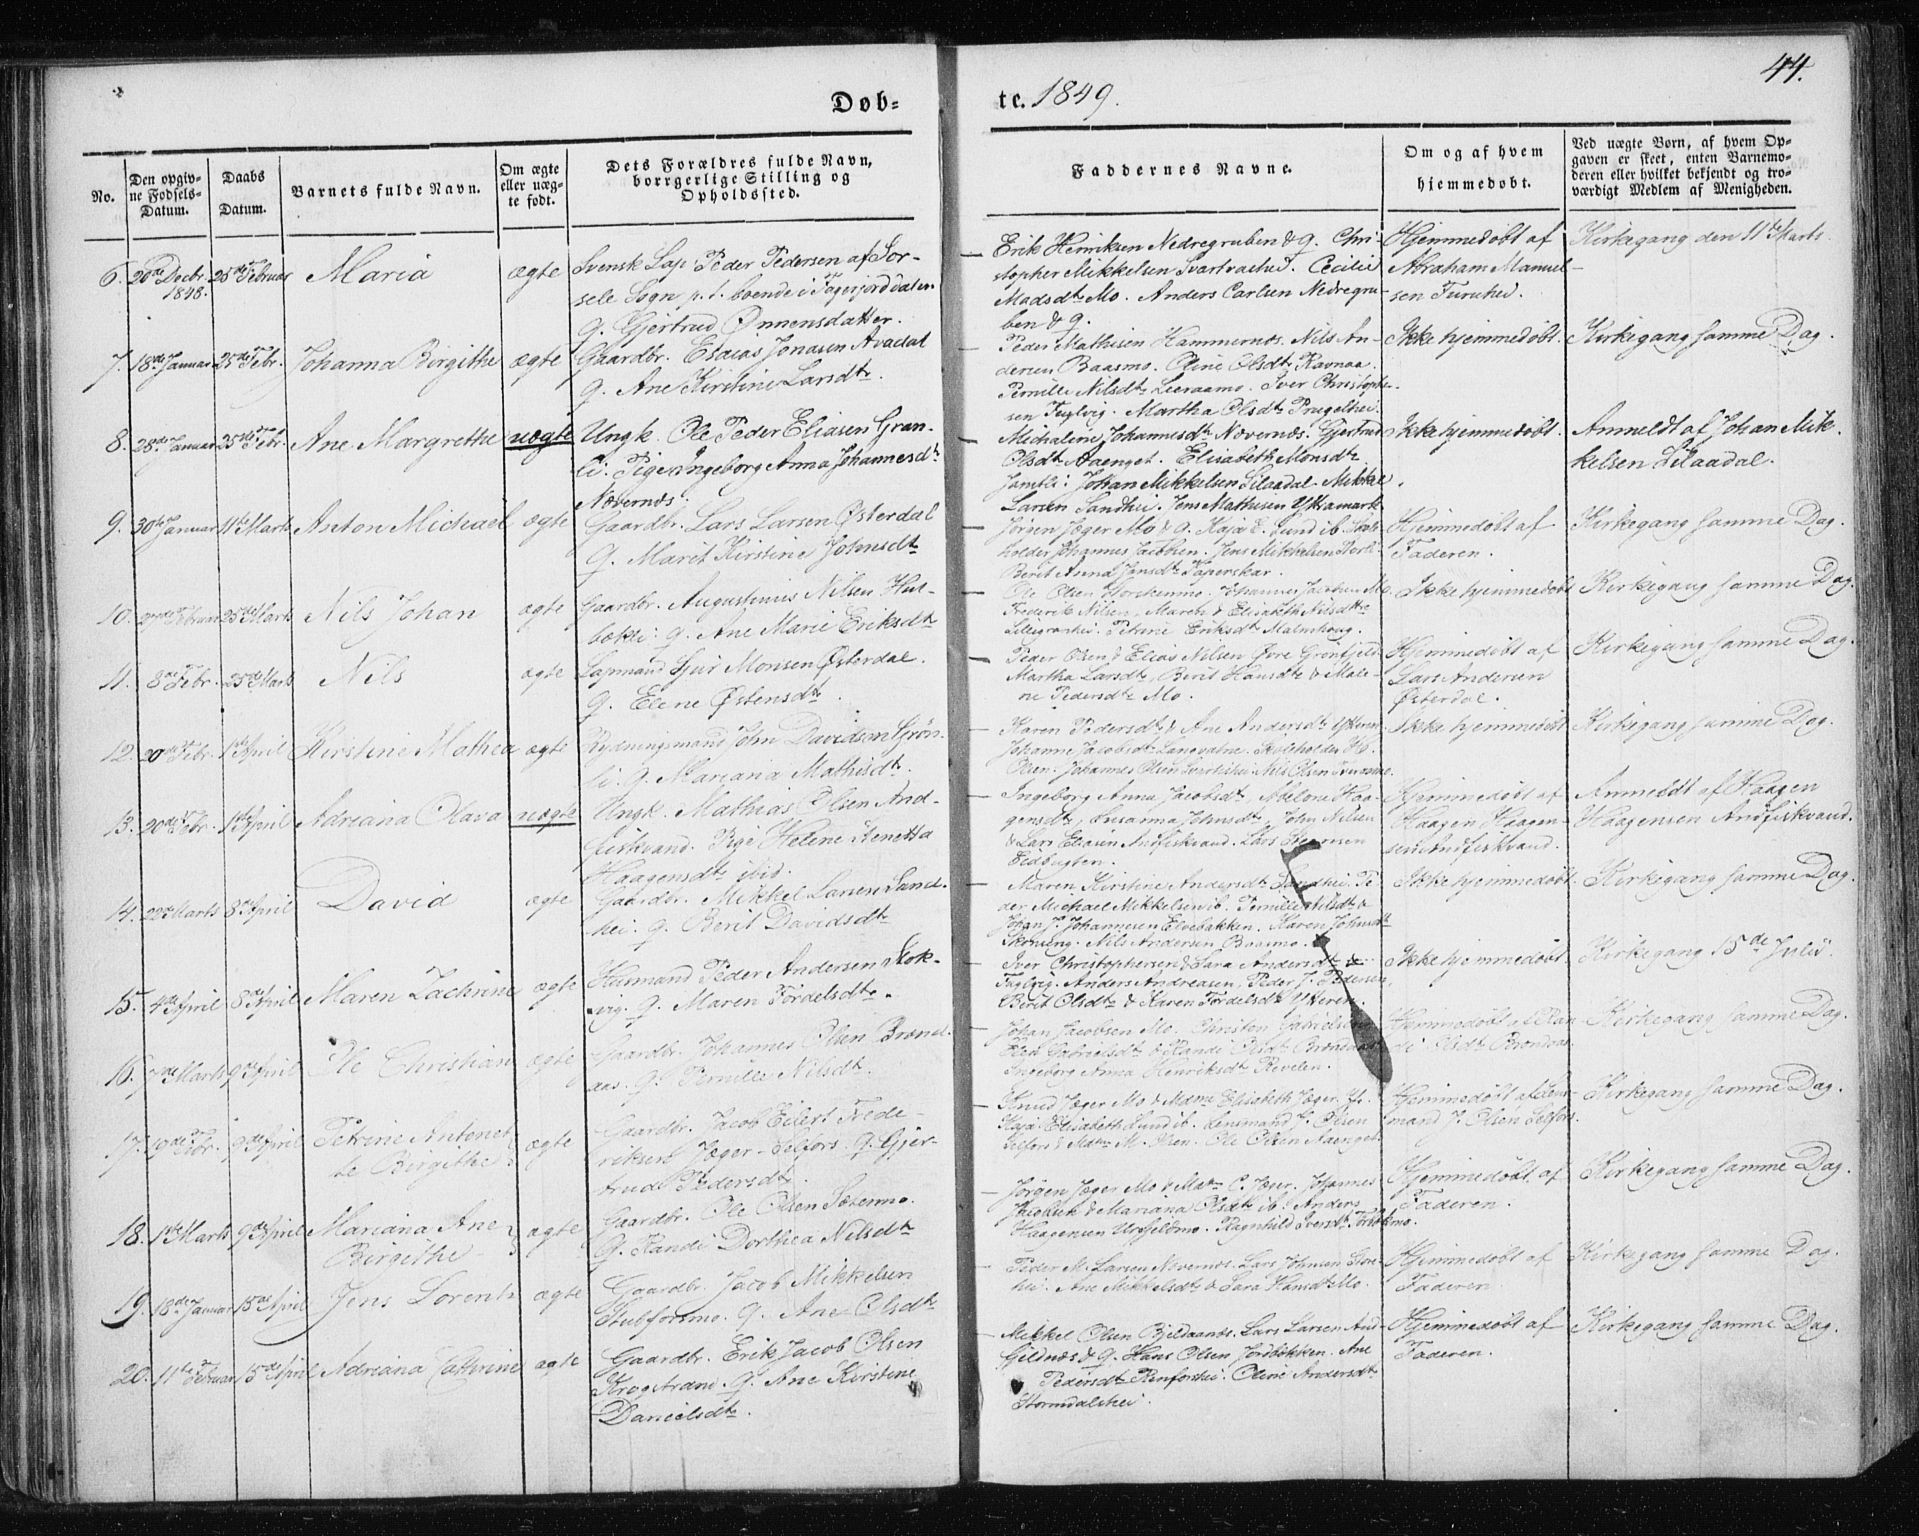 44.
Døb- te. 1849.
No.
Den opgiv-
ne Fødsels-
Datum.
Daabs
Datum.
Barnets fulde Navn.
Om ægte
eller uæg-
te født.
Dets Forældres fulde Navn,
borrgerlige Stilling og
Opholdssted.
Faddernes Navne.
Om og af hvem
hjemmedøbt.
Ved uægte Børn, af hvem Op-
gaven er skeet, enten Barnemo-
deren eller hvilket bekjendt og tro-
værdigt Medlem af Menigheden.
6. 20de Decbr. 1848. 25de Februar Maria ægte
Svensk Lap Peder Pedersen af Sor-
sele Sogn p. t. boende i
q. Gjertrud Önnensdatter.
Erik Henriksen Nedregruben & q. Chri-
stopher Mikkelsen Svartvashei. Cecilie
Madsdtr Mo. Anders Carlsen Nedregru-
ben & q.
Hjemmedøbt af
Abraham Manuel-
sen Furuhei.
Kirkegang den 11te Marts.
7. 18de Januar 25de Febr. Johanna Birgithe ægte
Gaardbr. Esaias Jonasen Avadal
q. Ane Kirstine Larsdtr.
Peder Mathisen Hammernæs. Nils An-
dersen Baasmo. Oline Olsdtr Ravnaa.
Pernille Nilsdtr Leeraamo. Iver Christophe-
sen Fuglvig. Martha Olsdtr Prugelhei.
Ikke hjemmedøbt.
Kirkegang samme Dag.
8. 28de Januar 25de Febr. Ane Margrethe uægte
Ungk. Ole Peder Eliasen Gran-
li. Pige Ingeborg Anna Johannesdtr
Nævernæs.
Michaline Johannesdtr Nævernæs. Gjertrud
Olsdtr Aaenget. Elisabeth Monsdtr
Jamtli. Johan Mikkelsen Lilaadal. Mikkel
Larsen Sandhei. Jens Mathisen Ytramark.
Ikke hjemmedøbt.
Anmeldt af Johan Mik-
kelsen Lilaadal.
9. 30te Januar 11te Marts Anton Michael ægte
Gaardbr. Lars Larsen Østerdal
q. Marit Kirstine Johnsdtr
Jørgen Jæger Mo & q. Kaja E. Lund ib. Skole-
holder Johannes Jacobsen. Jens Mikkelsen
Berit Anna Jensdtr
Hjemmedøbt af
Faderen.
Kirkegang samme Dag.
10. 25de Marts Nils Johan ægte
Gaardbr. Augustinus Nilsen Hul-
bækli. q. Ane Marie Eriksdtr
Ole Olsen Johannes Jacobsen Mo.
Frederik Nilsen, Marth & Elisabeth Nilsdtr
Petrine Eriksdtr Malmhoug.
Ikke hjemmedøbt
Kirkegang samme Dag.
11. 8de Febr. 25de Marts Nils ægte
Lapmand Sjur Monsen Østerdal.
q. Elene Østensdtr
Peder Olsen & Elias Nilsen Øvre Grønfjeld
Martha Larsdtr, Berit Hansdtr & Male-
ne Pedersdtr Mo.
Hjemmedøbt af
Lars Andersen
Østerdal.
Kirkegang samme Dag.
12. 20de Febr. 1ste April Kirstine Mathea ægte
Rydningsmand John Davidsen Grøn-
li. q. Mariana Mathisdtr.
Karen Pedersdtr & Ane Andersdtr
Johanne Jacobsdtr Langvatne. Skoleholder
Olsen. Johannes Olsen Svartishei. Nils Olsen
Ikke hjemmedøbt
Kirkegang samme Dag.
13. 20de Febr. 1ste April Adriana Olava uægte
Ungk. Mathias Olsen And-
fiskvand. Pige Helene Anetta
Haagensdtr ibid.
Ingeborg Anna Jacobsdtr, Haa-
gensdtr, Susanna Johnsdtr, John Nilsen
& Lars Eliasen Andfiskvand. Lars
Eidbugten.
Hjemmedøbt af
Haagen Haagen-
sen Andfiskvand.
Anmeldt af Haagen
Haagensen Andfiskvand.
14. 22de Marts 8de April David ægte
Gaardbr. Mikkel Larsen Sand-
hei. q. Berit Davidsdtr
Maren Kirstine Andersdtr Sandhei. Pe-
der Michael Mikkelsen ib. Pernille Nilsdtr &
Johan Js Johannesen Elvebakken. Karen Johnsdtr
Skonseng. Nils Andersen Baasmo.
Ikke hjemmedøbt
Kirkegang samme Dag.
15. 4de April 8de April Maren Zachrine ægte
Huusmand Peder Andersen Stok-
vig. q. Maren Fordelsdtr.
Iver Christophersen & Sara Andersdtr
Fuglvig. Anders Andreasen, Peder J. Pedersen,
Berit Olsdtr & Karen Fordelsdtr Ytteren.
Ikke hjemmedøbt
Kirkegang 15de Julii.
16. 7de Marts 9de April Ole Christian ægte
Gaardbr. Johannes Olsen Brænd-
aas. q. Pernille Nilsdtr.
Johan Jacobsen Mo. Christen Gabrielsen
Elen Gabrielsdtr & Randi Olsdtr
Ingeborg Anna Henriksdtr Revelen.
Hjemmedøbt af Ran-
di Olsdtr
Kirkegang samme Dag.
17. 19de Febr. 9de April Petrine Antonet-
te Birgithe ægte
Gaardbr. Jacob Eilert Frede-
riksen Jæger - Selfors. q. Gjer-
trud Pedersdtr.
Knud Jæger Mo & Mdme Elisabeth Jæger.
Kaja Elisabeth Lund ib. Lensmand J. Olsen
Selfors & M. Olsen. Ole Olsen Aaenget.
Hjemmedøbt af Lens-
mand J. Olsen Selfors.
Kirkegang samme Dag.
18. 1ste Marts 9de April Mariana Ane
Birgithe ægte
Gaardbr. Ole Olsen Sætermo.
q. Randi Dorthea Nilsdtr
Jørgen Jæger Mo & C. Jæger. Johannes
& Mariana Olsdtr ib. Anders
Haagensen Ragnhild Iversdtr
Hjemmedøbt af
Faderen.
Kirkegang samme Dag.
19. 18de Januar 15de April Jens Lorentz ægte
Gaardbr. Jacob Mikkelsen
Stubforsmo. q. Ane Olsdtr
Peder M. Larsen Nævernæs. Lars Johnsen
Ane Mikkelsdtr & Sara Hansdtr Mo.
Hjemmedøbt af
Faderen.
Kirkegang samme Dag.
20. 11te Februar 15de April Adriana Cathrine ægte
Gaardbr. Erik Jacob Olsen
Krogstrand. q. Ane Kirstine
Danielsdtr.
Mikkel Olsen Bjeldaanæs. Lars Larsen And-
& q. Hans Olsen Jordbekken. Ane
Pedersdtr Renforshei. Oline Andersdtr
Stormdalshei.
Hjemmedøbt af
Faderen.
Kirkegang samme Dag.